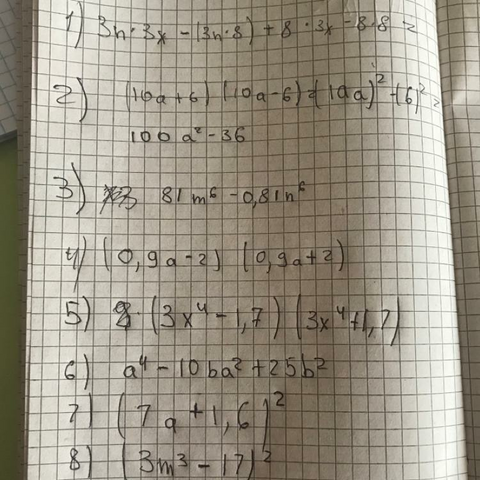 1) 3n · 3x - (3n · 8) + 8 · 3x - 8 · 8 =
2) (10a + 6) (10a - 6) = (10a)² - (6)² =
100a² - 36
3) 81m⁶ - 0,81n⁶
4) (0,9a - 2) (0,9a + 2)
5) (3x⁴ - 1,7) (3x⁴ + 1,7)
6) a⁴ - 10ba² + 25b²
7) (7a + 1,6)²
8) (3m³ - 17)²